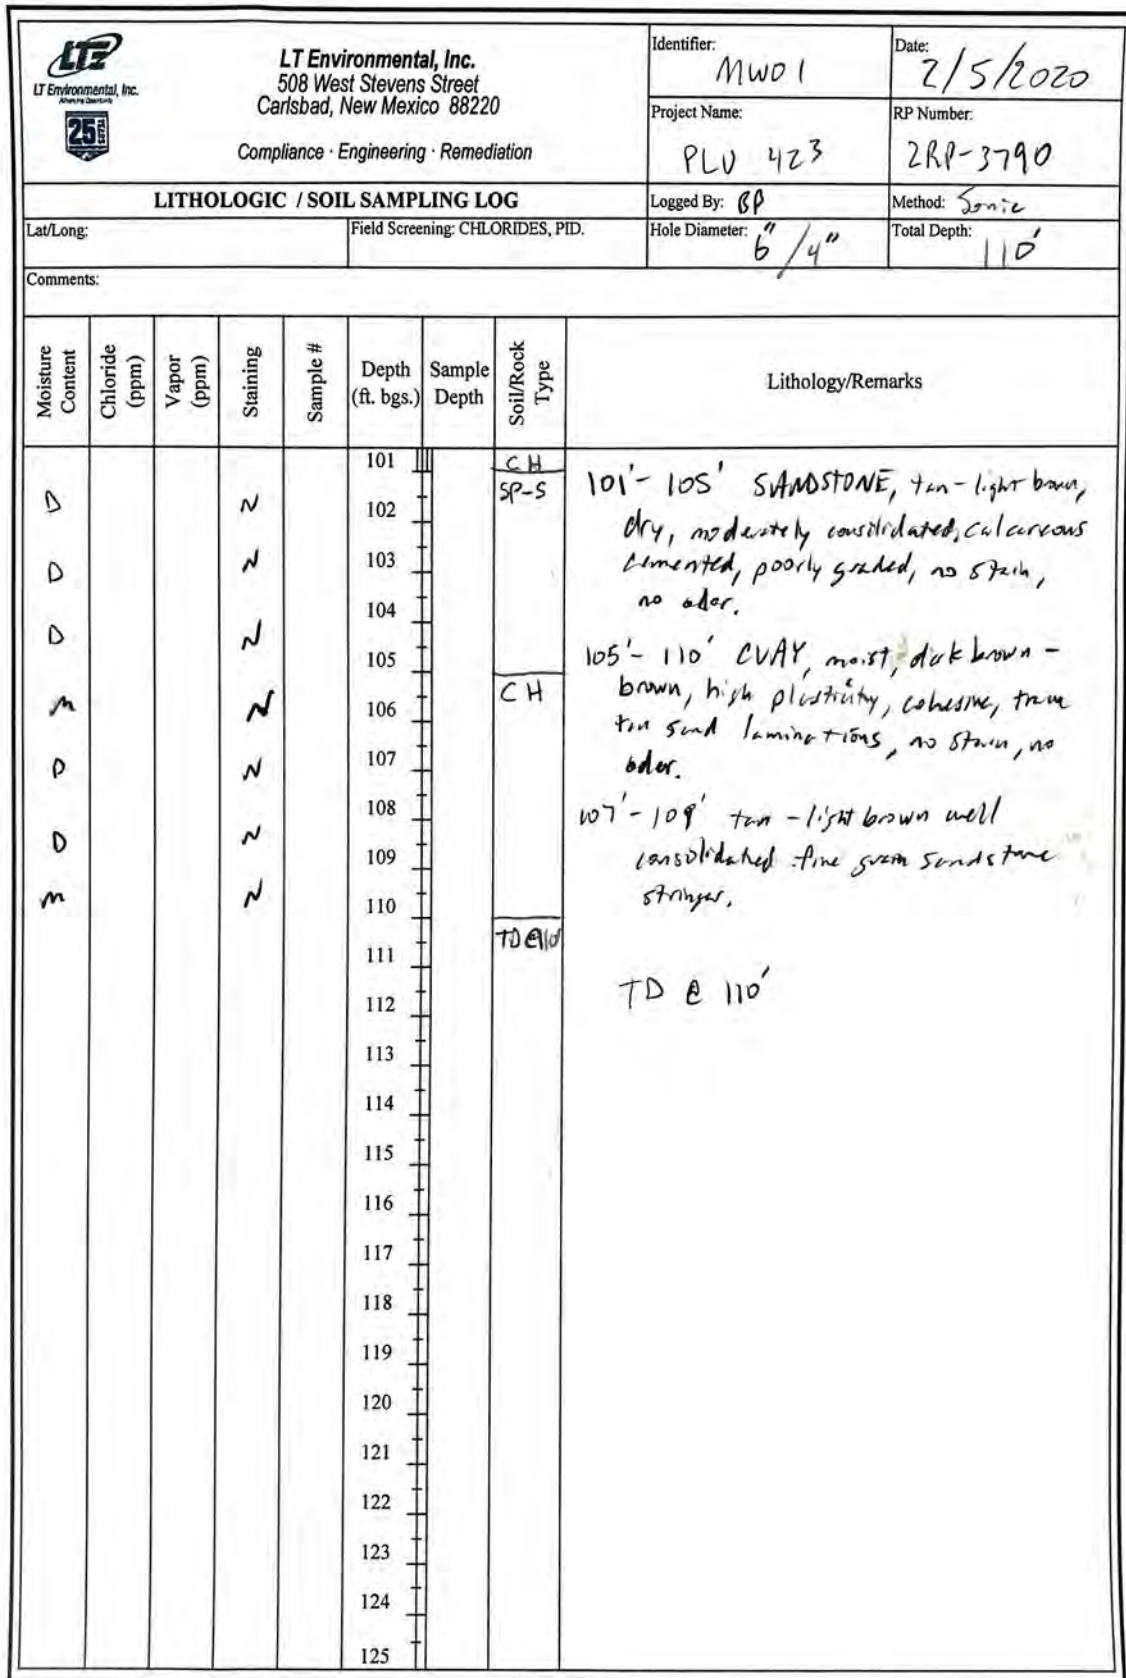 LTE
LT Environmental, Inc.
Advancing Opportunity
25 YEARS
LT Environmental, Inc.
508 West Stevens Street
Carlsbad, New Mexico 88220
Compliance · Engineering · Remediation
Identifier: MW01
Date: 2/5/2020
Project Name: PLU 423
RP Number: 2RP-3790
LITHOLOGIC / SOIL SAMPLING LOG
Logged By: BP
Method: Sonic
Lat/Long:
Field Screening: CHLORIDES, PID.
Hole Diameter: 6"/4"
Total Depth: 110'
Comments:
Moisture Content
Chloride (ppm)
Vapor (ppm)
Staining
Sample #
Depth (ft. bgs.)
Sample Depth
Soil/Rock Type
Lithology/Remarks
101 CH
SP-S 101'-105' SANDSTONE, tan-light brown,
D N 102 dry, moderately consolidated, calcareous
D N 103 cemented, poorly graded, no stain,
104 no odor.
D N 105 105'-110' CLAY, moist, dark brown-
m N 106 CH brown, high plasticity, cohesive, trace
tan sand laminations, no stain, no
D N 107 odor.
108 107'-109' tan-light brown well
D N 109 consolidated fine grain sandstone
m N 110 stringer.
TD@110'
111
112 TD @ 110'
113
114
115
116
117
118
119
120
121
122
123
124
125